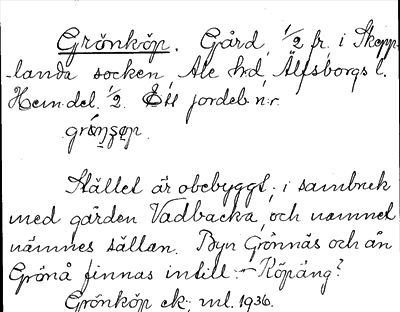 Grönköp. Gård, 1/2 fr. i Skepp-
landa socken Ale hd, Älfsborgs l.
Hem.del. 1/2. Ett jordeb.n:r.
Stället är obebyggt; i sambruk
med gården Vadbacka, och namnet
nämnes sällan. Byn Grönnäs och ån
Grönå finnas intill. – Köpäng?
Grönköp ek; ml. 1936.